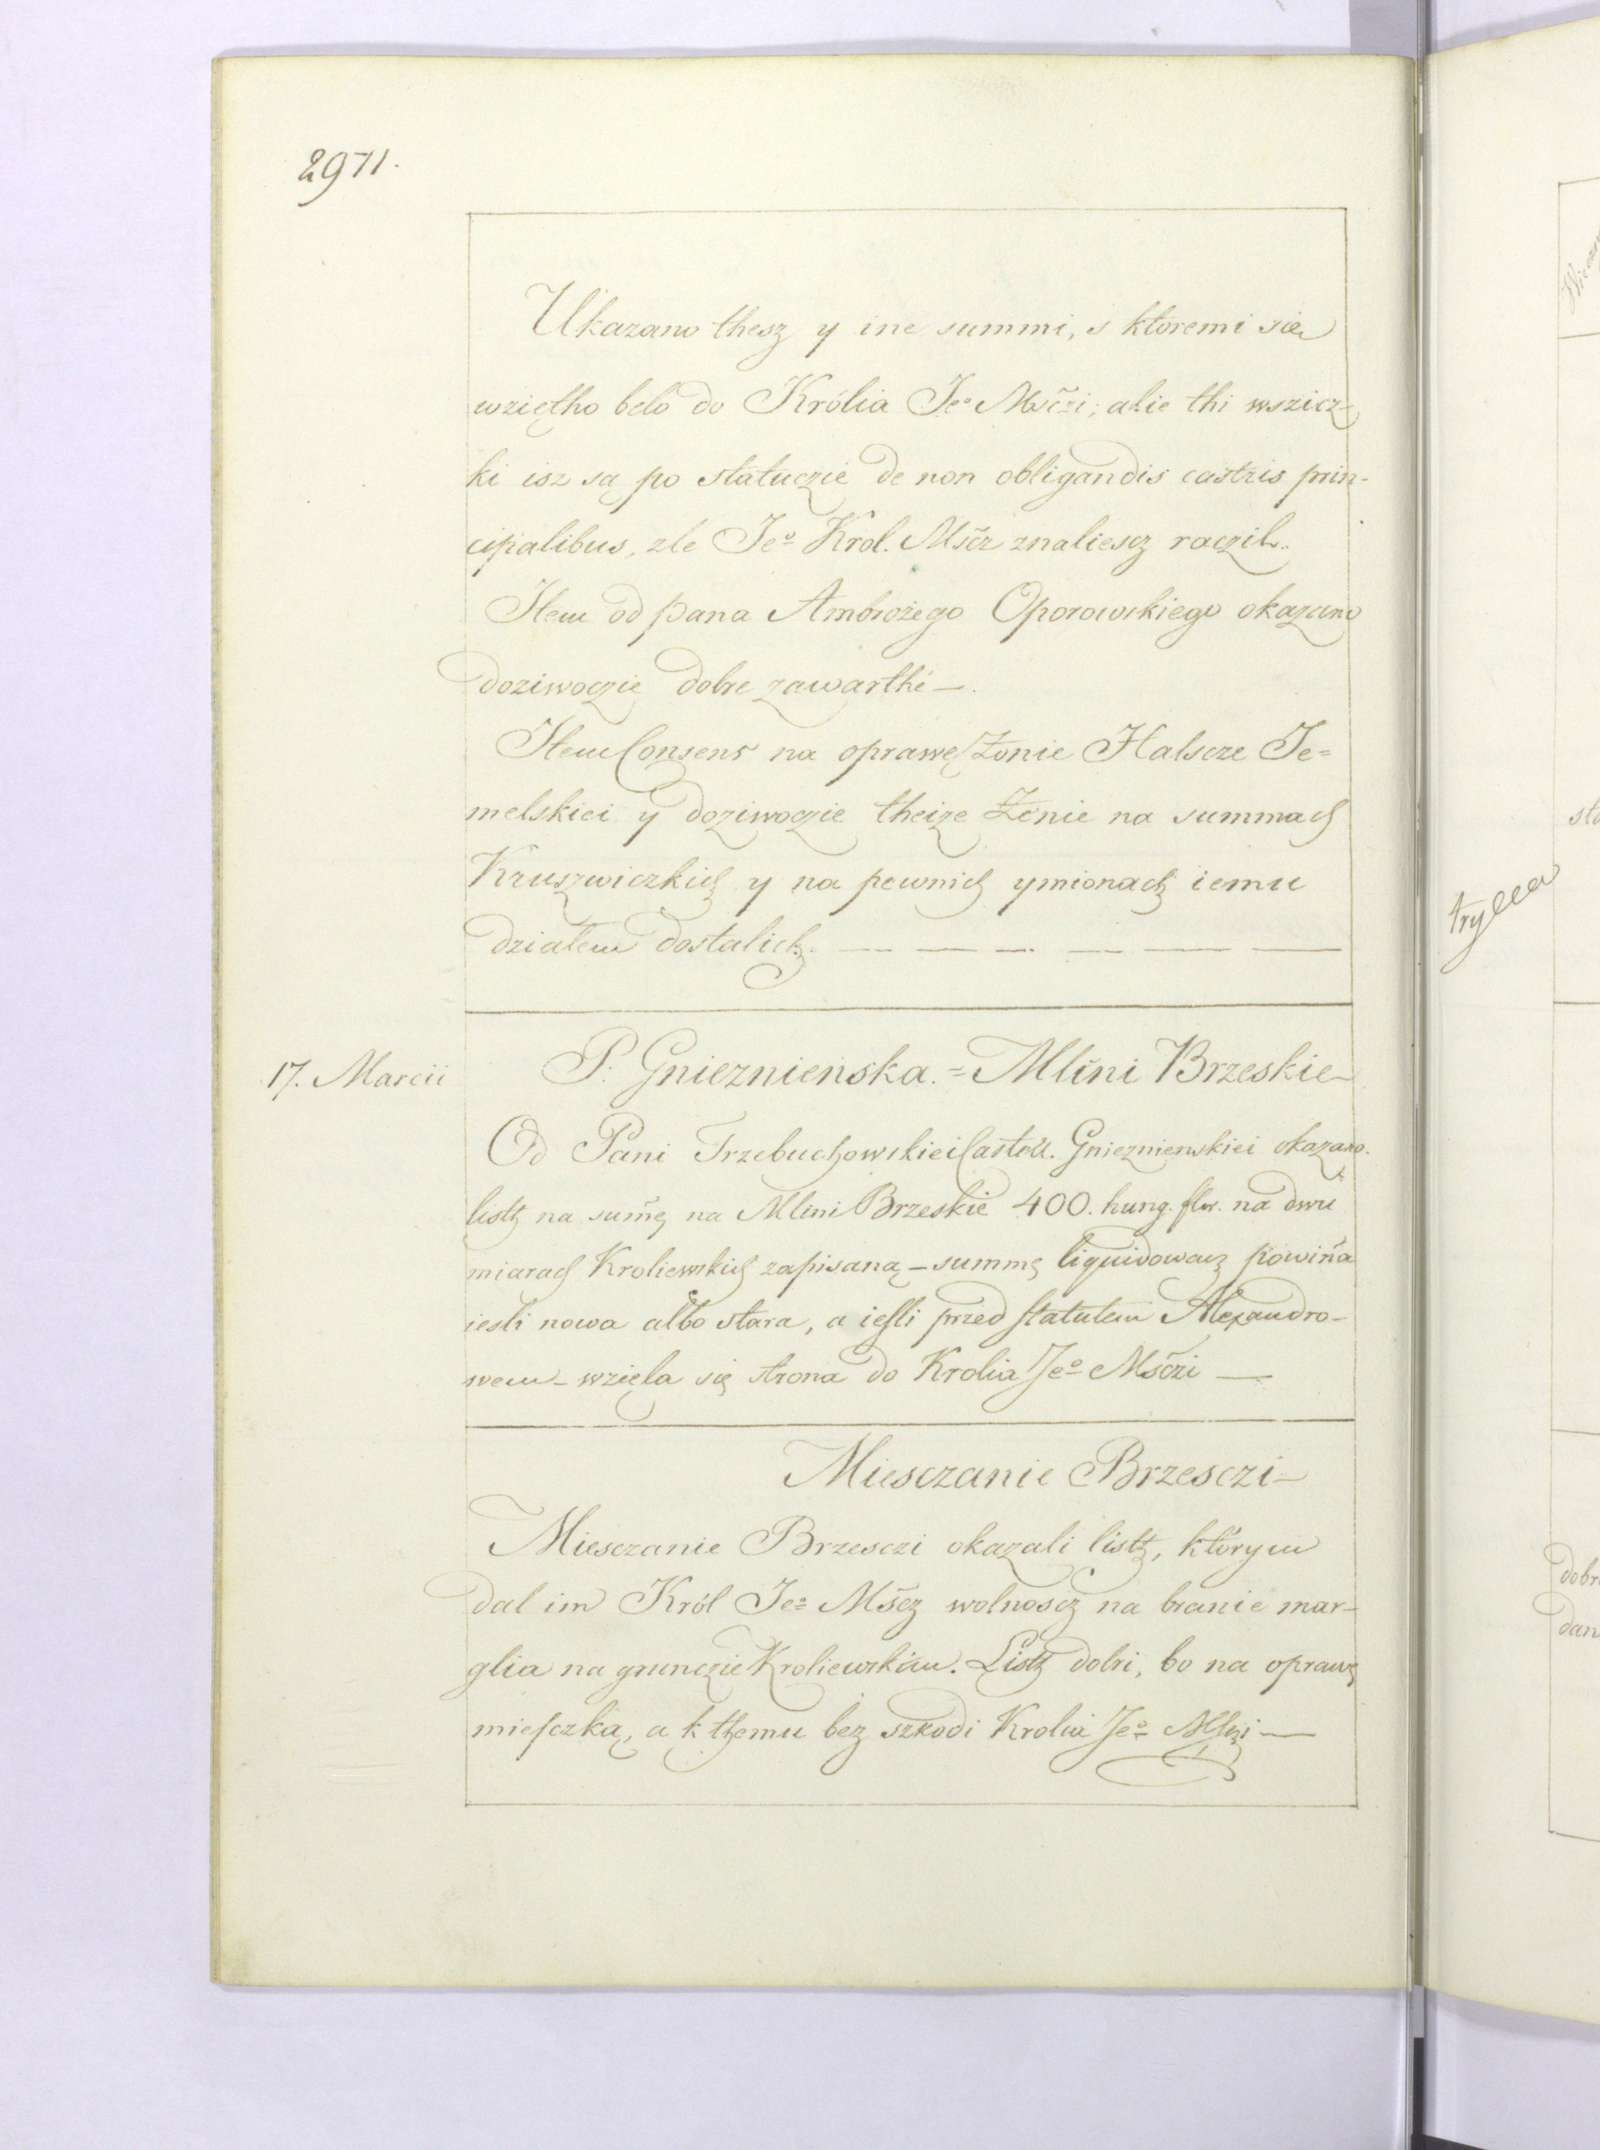 2971.
Ukazano thesz y ine summi, s ktoremi się
wziętho belo do Królia Jeº Mśczi; alie thi wszicz-
ki isz są po statuczie de non obligandis castris prin-
cipalibus, zle Jeº Krol. Mścz znaliescz raczil.
Item od pana Ambrożego Oporowskiego okazano
doziwoczie dobre zawarthe —.
Item Consens na oprawę Żonie Halscze Je=
melskiei y doziwoczie theize Żenie na summach
Kruszwiczkich y na pewnich ymionach iemu
działem dostalich. — — — — — —
17. Marcii
P. Gnieznieńska. = Mlini Brzeskie
Od Pani Trzebuchowskiei Castell. Gnieznienskiei okazano
listh na sum̃ę na Mlini Brzeskie 400. hung. flor. na dwu
miarach Kroliewskich zapisaną – summę liquidowacz powiña
iesli nowa albo stara, a iesli przed statutem Alexandro-
wem – wzięla się strona do Krolia Jeº Mśczi —
Miesczanie Brzesczi –
Miesczanie Brzesczi okazali listh, którym
dal im Król Jeº Mścz wolnoscz na branie mar-
glia na grunczie Kroliewskim. Listh dobri, bo na oprawę
miesczka, a k themu bez szkodi Krolia Jeº Mśczi —
trycza
sta
dobr
dan